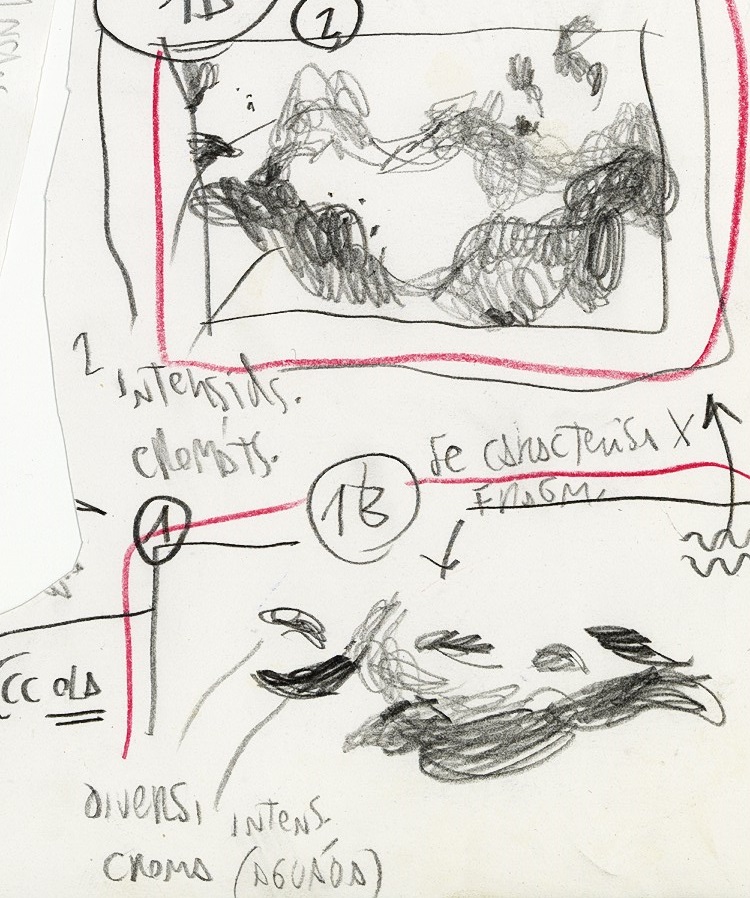 2
2 Intensids.
cromàts.
1B
se caracterisa X
FRAGM.
1
CCOLA
DIVERSI INTENS.
CROMA (AGUADA)